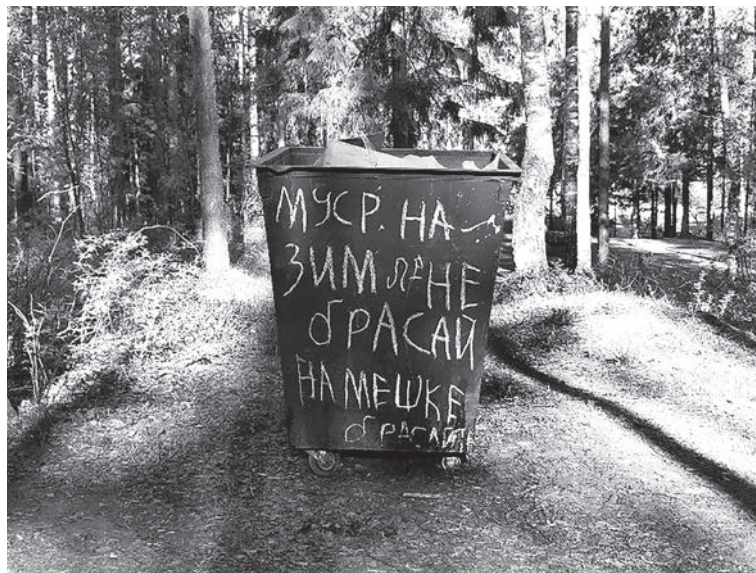 МУСР. НА
ЗИМ ЛЕ НЕ
бРАСАЙ
НА МЕШКЕ
бРАСАЙТЕ